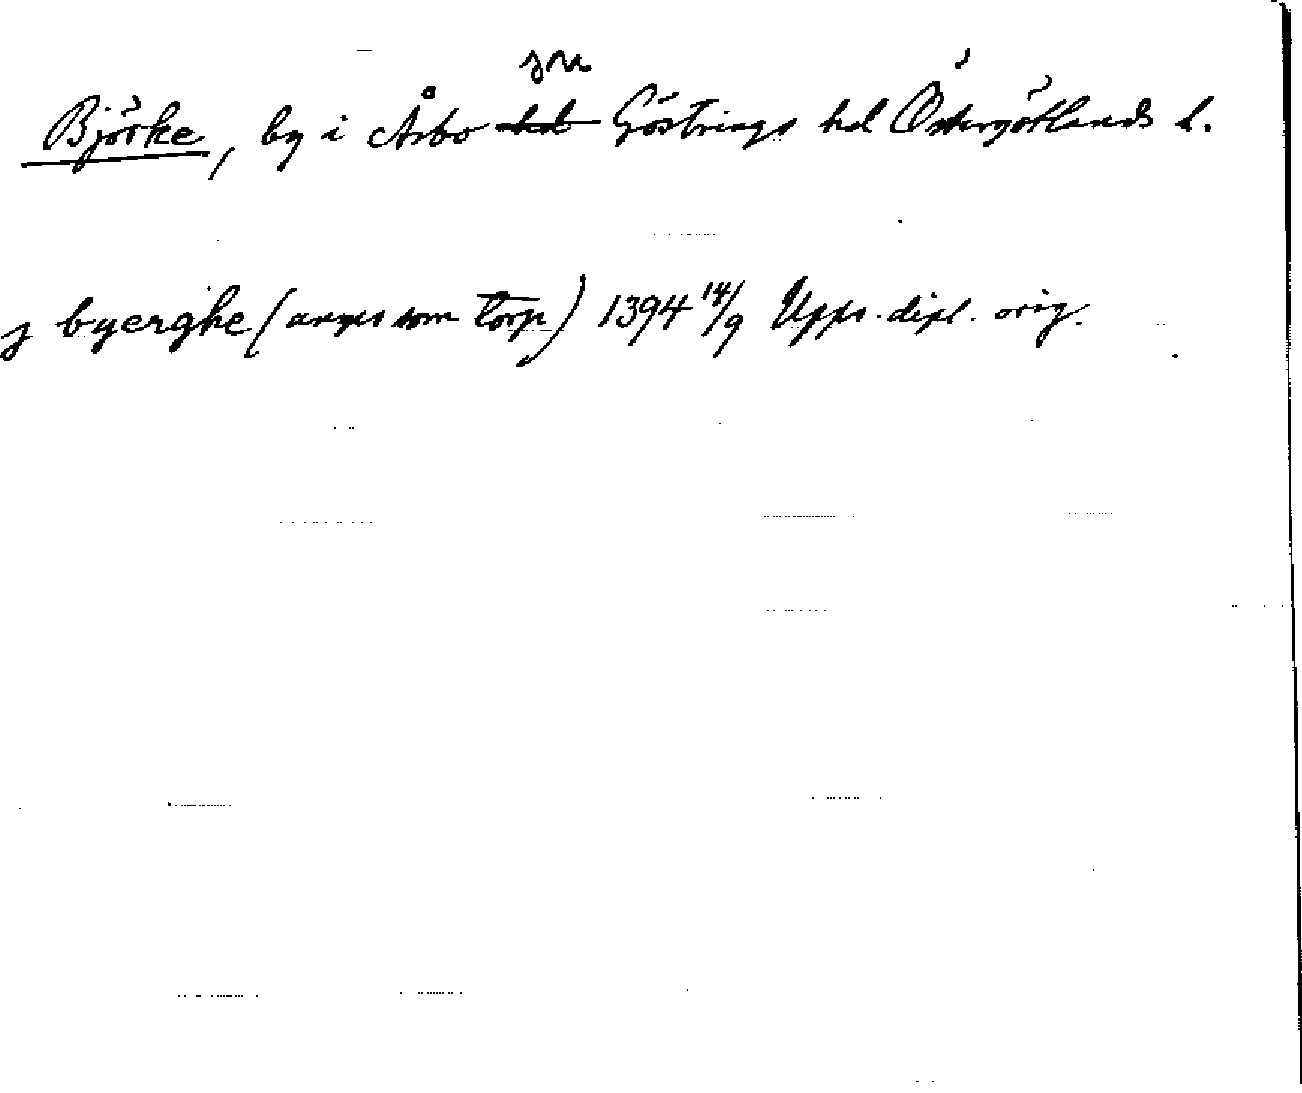 Björke, by i Åsbo sn Göstrings hd Östergötlands l.
j byerghe (anges som torp) 1394 14/9 Upps. dipl. orig.